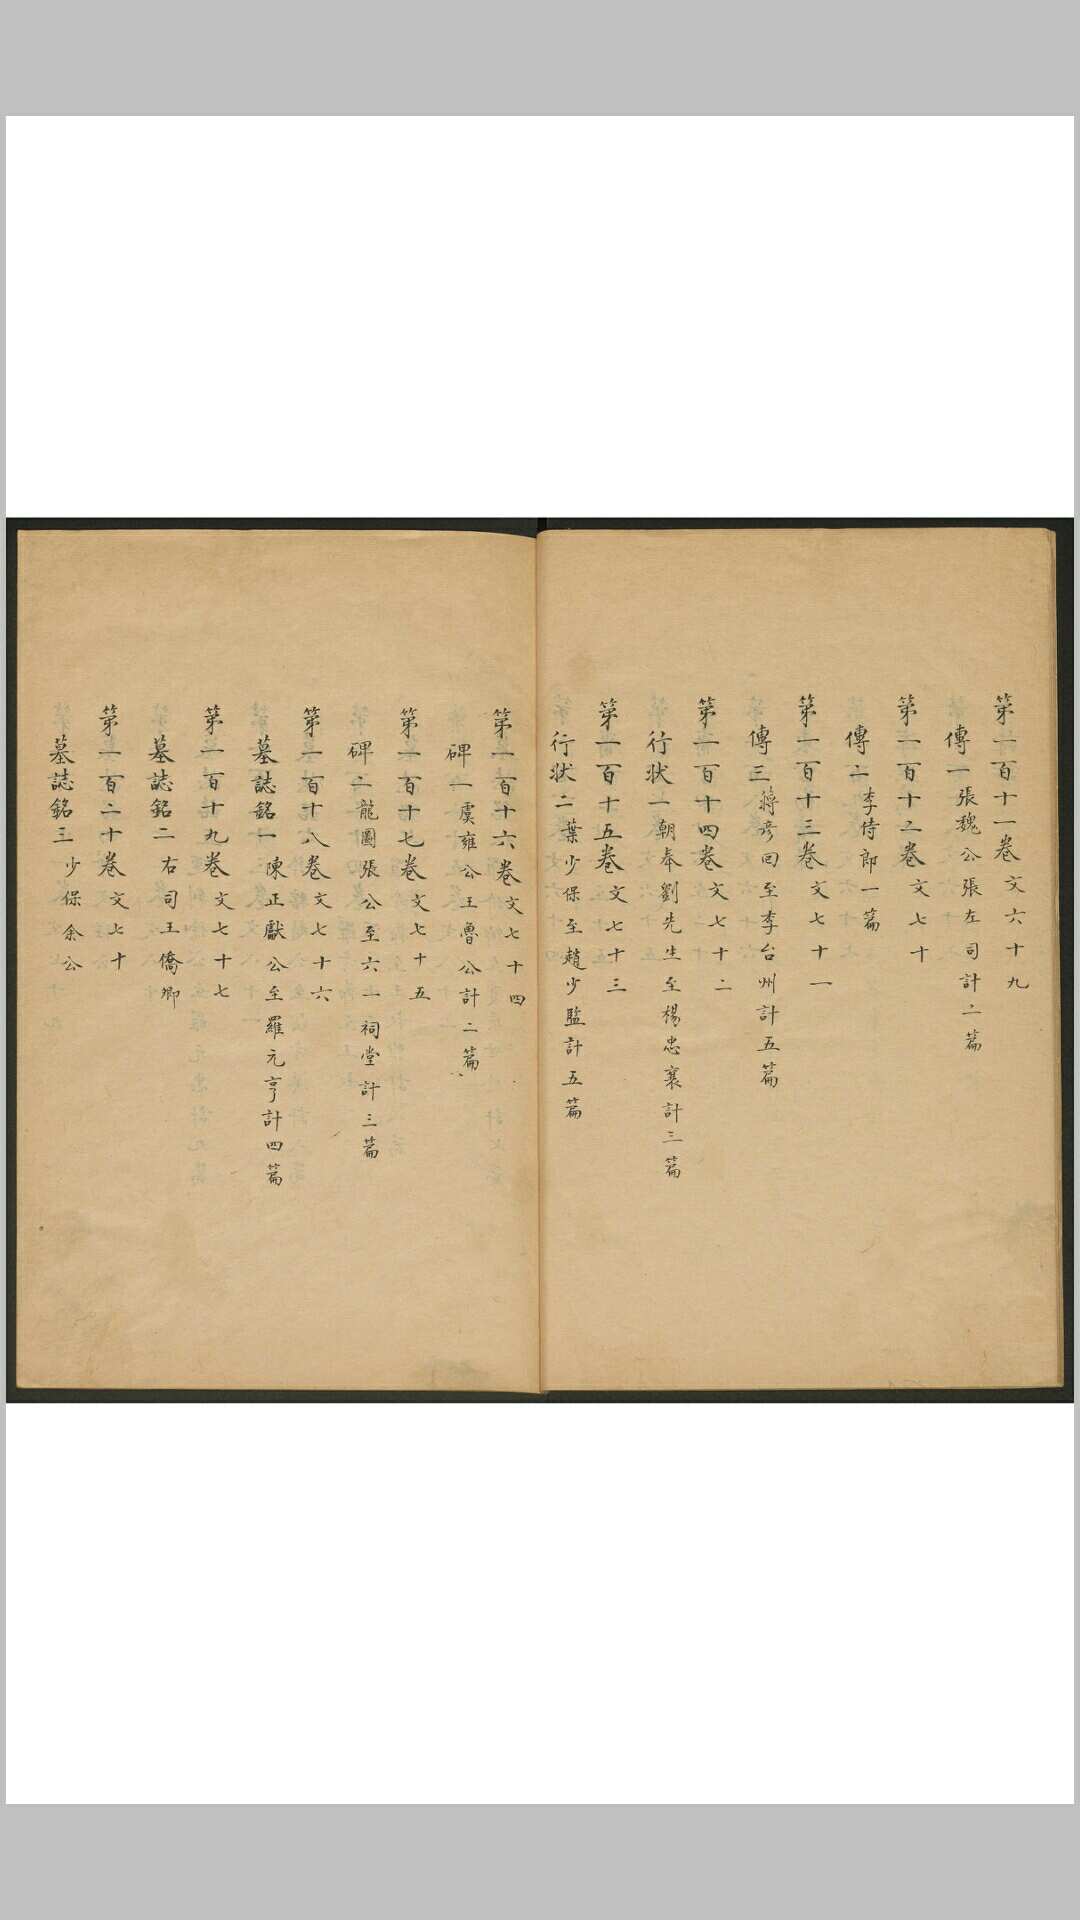 第一百十一卷文六十九
傳一張魏公張左司計二篇
第一百十二卷文七十
傳二李侍郎一篇
第一百十三卷文七十一
傳三蔣彥回至李台州計五篇
第一百十四卷文七十二
行狀一朝奉劉先生至楊忠襄計三篇
第一百十五卷文七十三
行狀二葉少保至趙少監計五篇
第一百十六卷文七十四
碑一虞雍公王魯公計二篇
第一百十七卷文七十五
碑二龍圖張公至六一祠堂計三篇
第一百十八卷文七十六
墓誌銘一陳正獻公至羅元亨計四篇
第一百十九卷文七十七
墓誌銘二右司王僑卿
第一百二十卷文七十
墓誌銘三少保余公